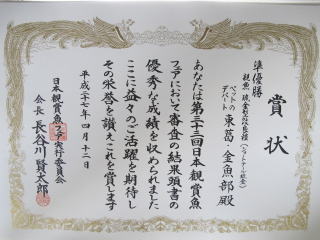 賞状
準優勝
親魚 琉金型改良種(ショートテール琉金)
ペットの
デパート 東葛・金魚部殿
あなたは第三十三回日本観賞魚
フェアにおいて審査の結果頭書の
優秀な成績を収められました
ここに益々のご活躍を期待し
その栄誉を讃えこれを賞します
平成二十七年四月十二日
日本観賞魚フェア実行委員会
会長 長谷川賢太郎